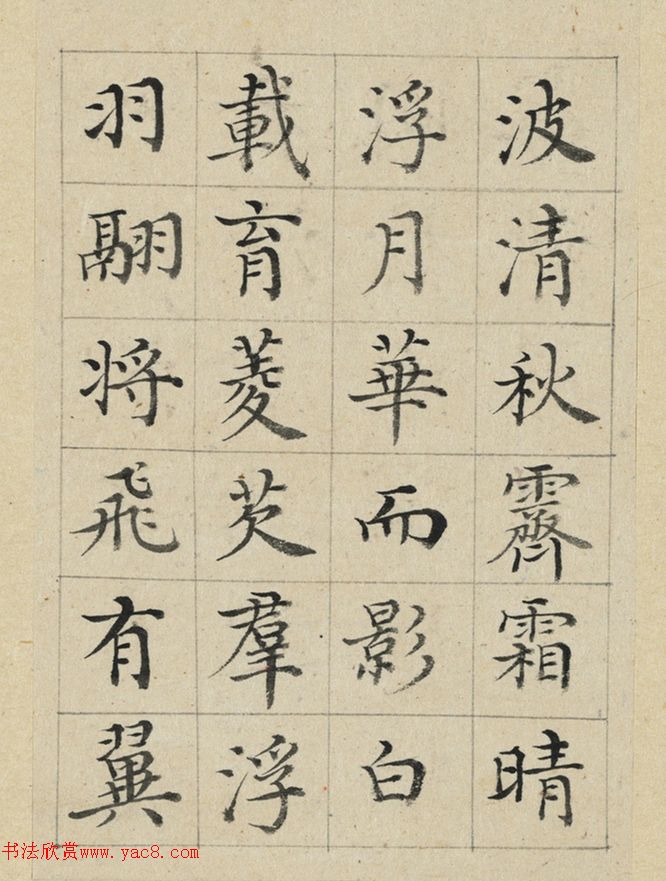 波清秋霽霜晴
浮月華而影白
載育菱芡羣浮
羽翮将飛有翼
书法欣赏www.yac8.com